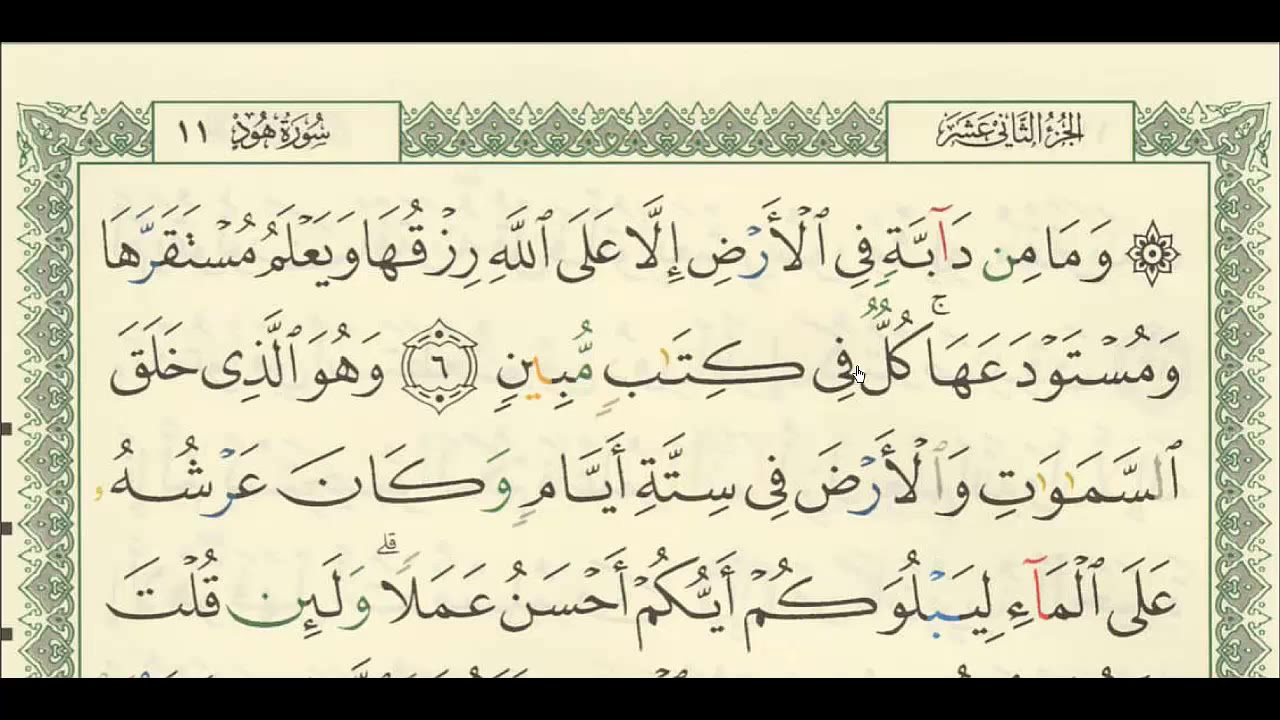 الجُزْءُ الثَّانِي عَشَرَ
سُورَةُ هُودٍ ١١
۞ وَمَا مِن دَآبَّةٍ فِي ٱلْأَرْضِ إِلَّا عَلَى ٱللَّهِ رِزْقُهَا وَيَعْلَمُ مُسْتَقَرَّهَا
وَمُسْتَوْدَعَهَا ۚ كُلٌّ فِي كِتَٰبٍ مُّبِينٍ ٦ وَهُوَ ٱلَّذِي خَلَقَ
ٱلسَّمَٰوَٰتِ وَٱلْأَرْضَ فِي سِتَّةِ أَيَّامٍ وَكَانَ عَرْشُهُۥ
عَلَى ٱلْمَآءِ لِيَبْلُوَكُمْ أَيُّكُمْ أَحْسَنُ عَمَلًا ۗ وَلَئِن قُلْتَ